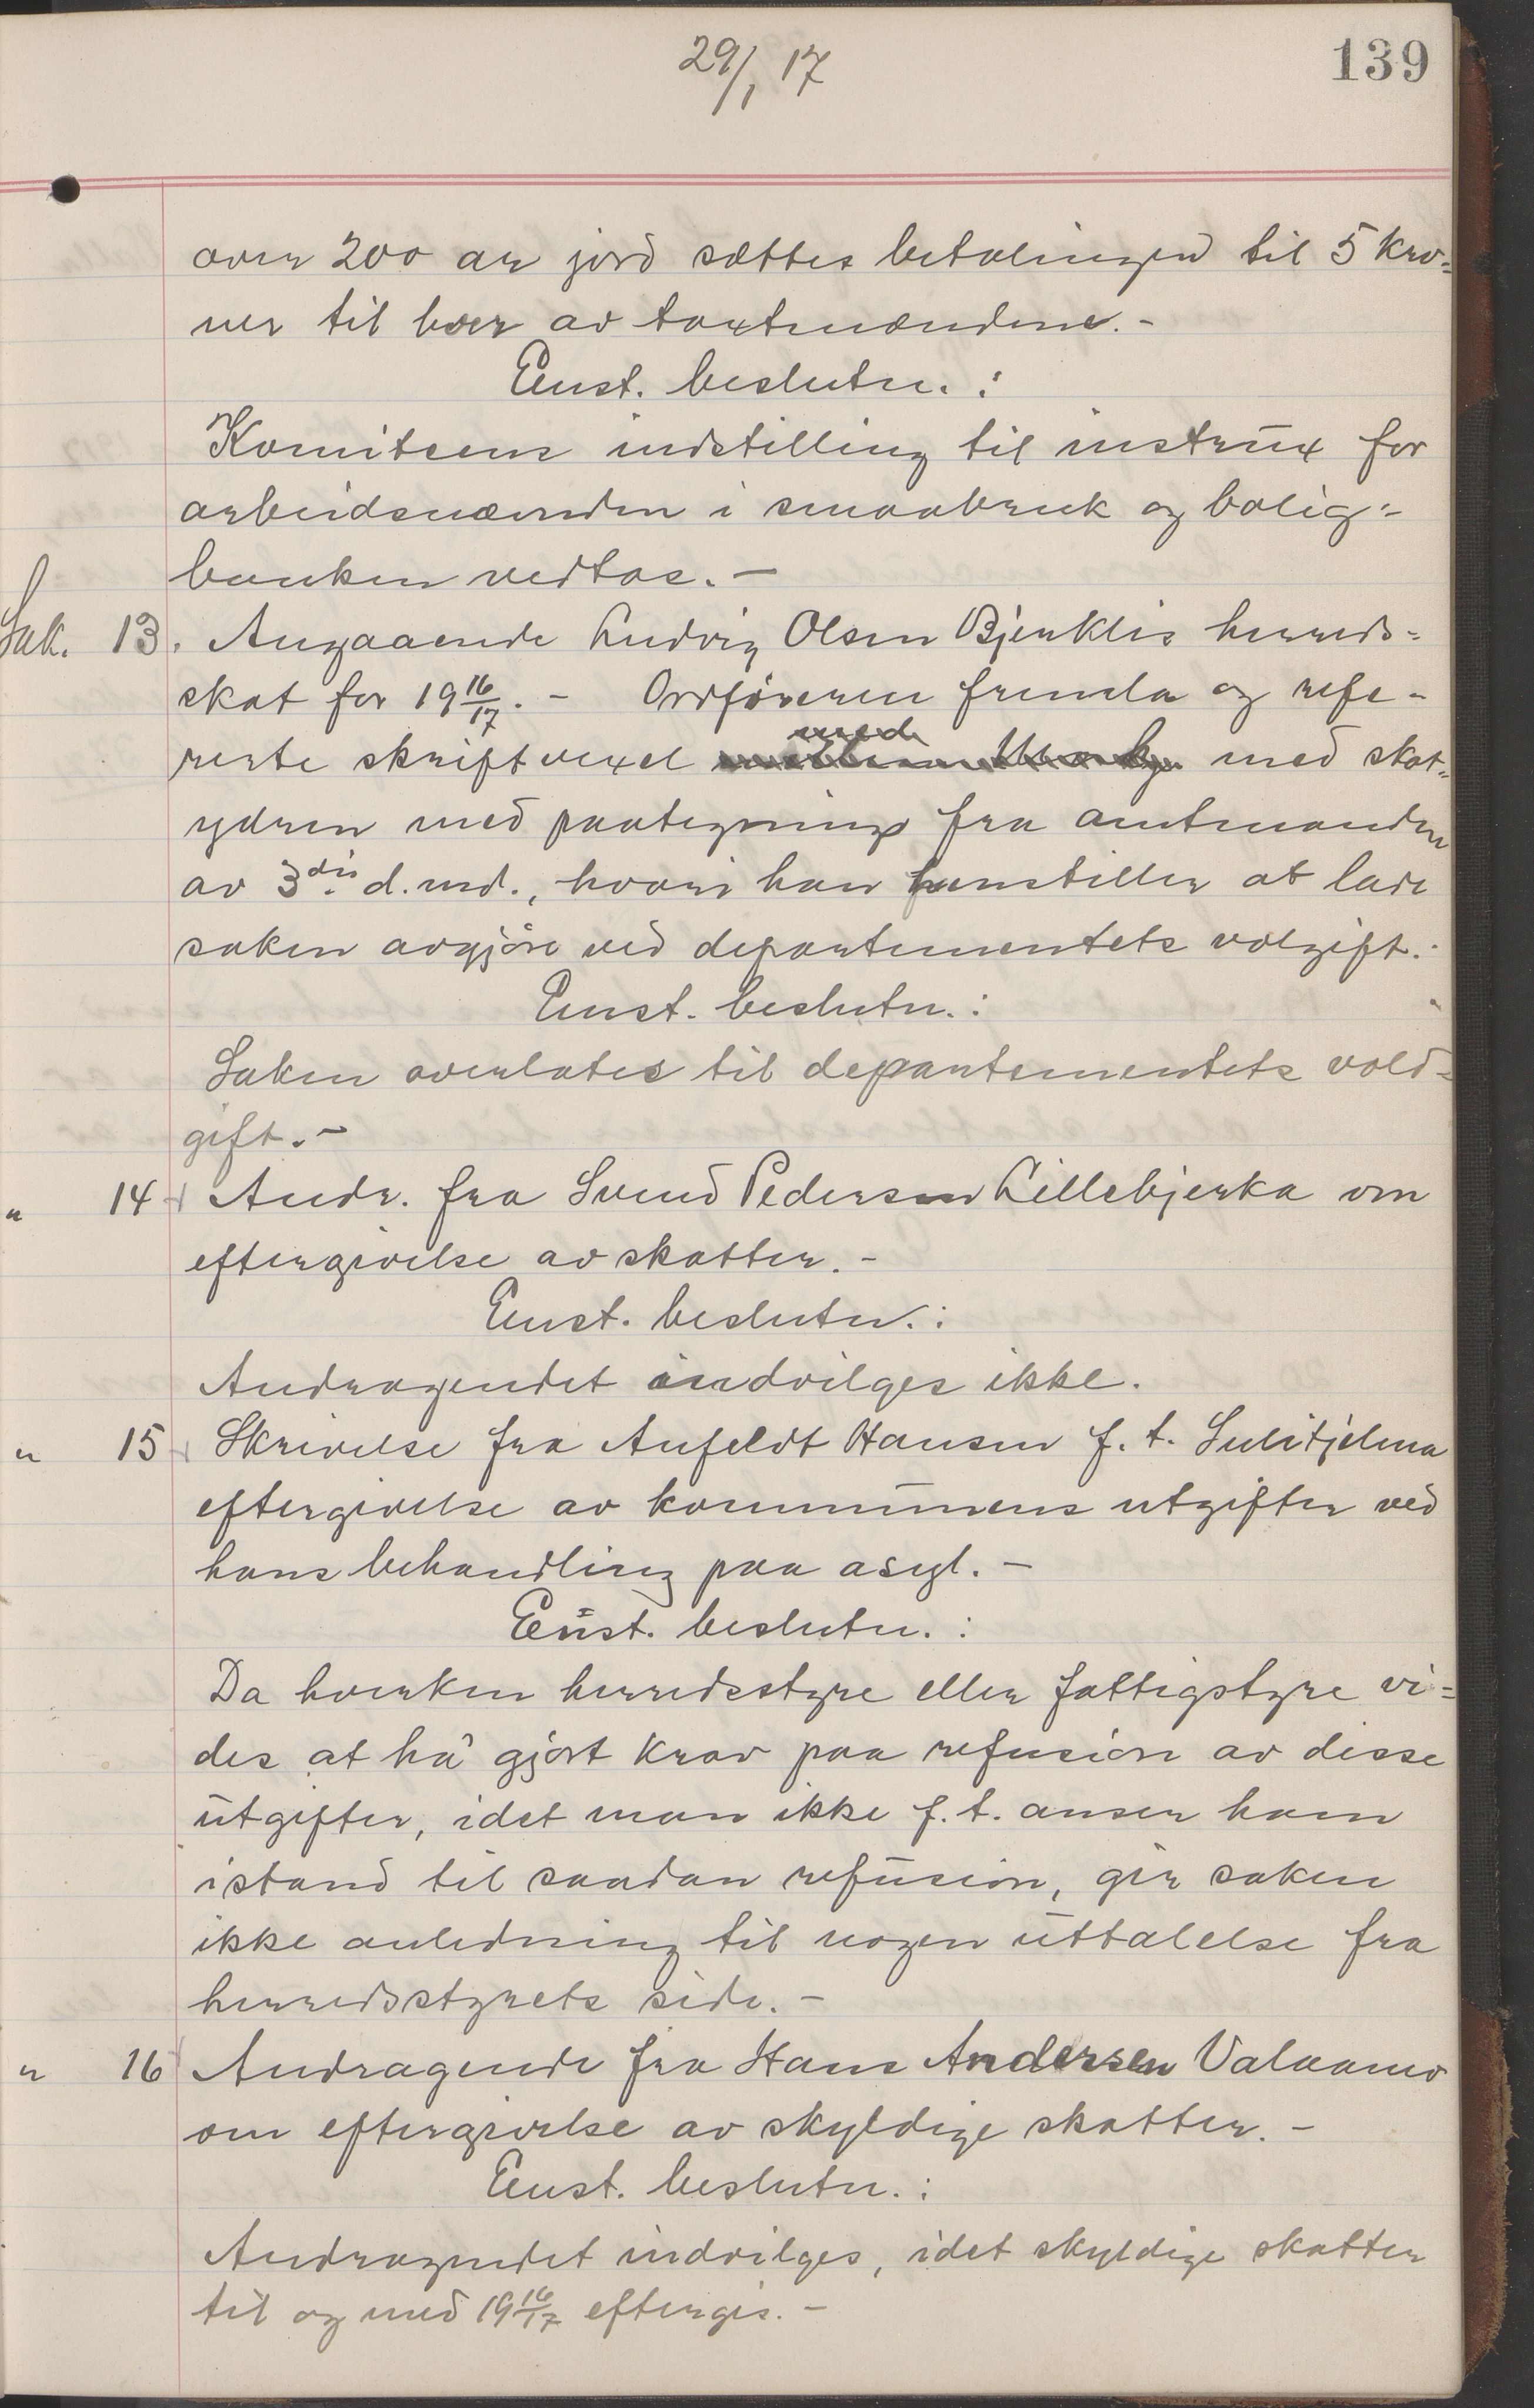 29/1 17
139
over 200 ar jord sættes betalingen til 5 kro=
ner til hver av taxtmændene.-
Enst. beslutn.:
Komiteens indstilling til instrux for
arbeidsnævnden i smaabruk og bolig=
banken vedtas.-
Sak. 13. Angaaende Ludvig Olsen Bjerklis herreds-
skat for 19 16/17. - Ordføreren fremla og refe-
rerte skriftvexel med skat=
yderen med paategning fra amtmanden
av 3die d. md., hvori han henstiller at lade
saken avgjøre ved departementets volgift.-
Enst. beslutn.:
Saken overlates til departementets vold=
gift.-
" 14 Andr. fra Svend Pedersen Lillebjerka om
eftergivelse av skatter.-
Enst. beslutn.:
Andragendet indvilges ikke.
" 15 Skrivelse fra Anfeldt Hansen f. t. Sulitjelma
eftergivelse av kommunens utgifter ved
hans behandling paa asyl.-
Enst. beslutn.:
Da hverken herredsstyre eller fattigstyre vi=
des at ha gjort krav paa refusion av disse
utgifter, idet man ikke f. t. anser ham
istand til saadan refusion, gir saken
ikke anledning til nogen uttalelse fra
herredsstyrets side.-
" 16 Andragende fra Hans Andersen Valaamo
om eftergivelse av skyldige skatter.-
Enst. beslutn.:
Andragendet indvilges, idet skyldige skatter
til og med 19 16/17 eftergis.-